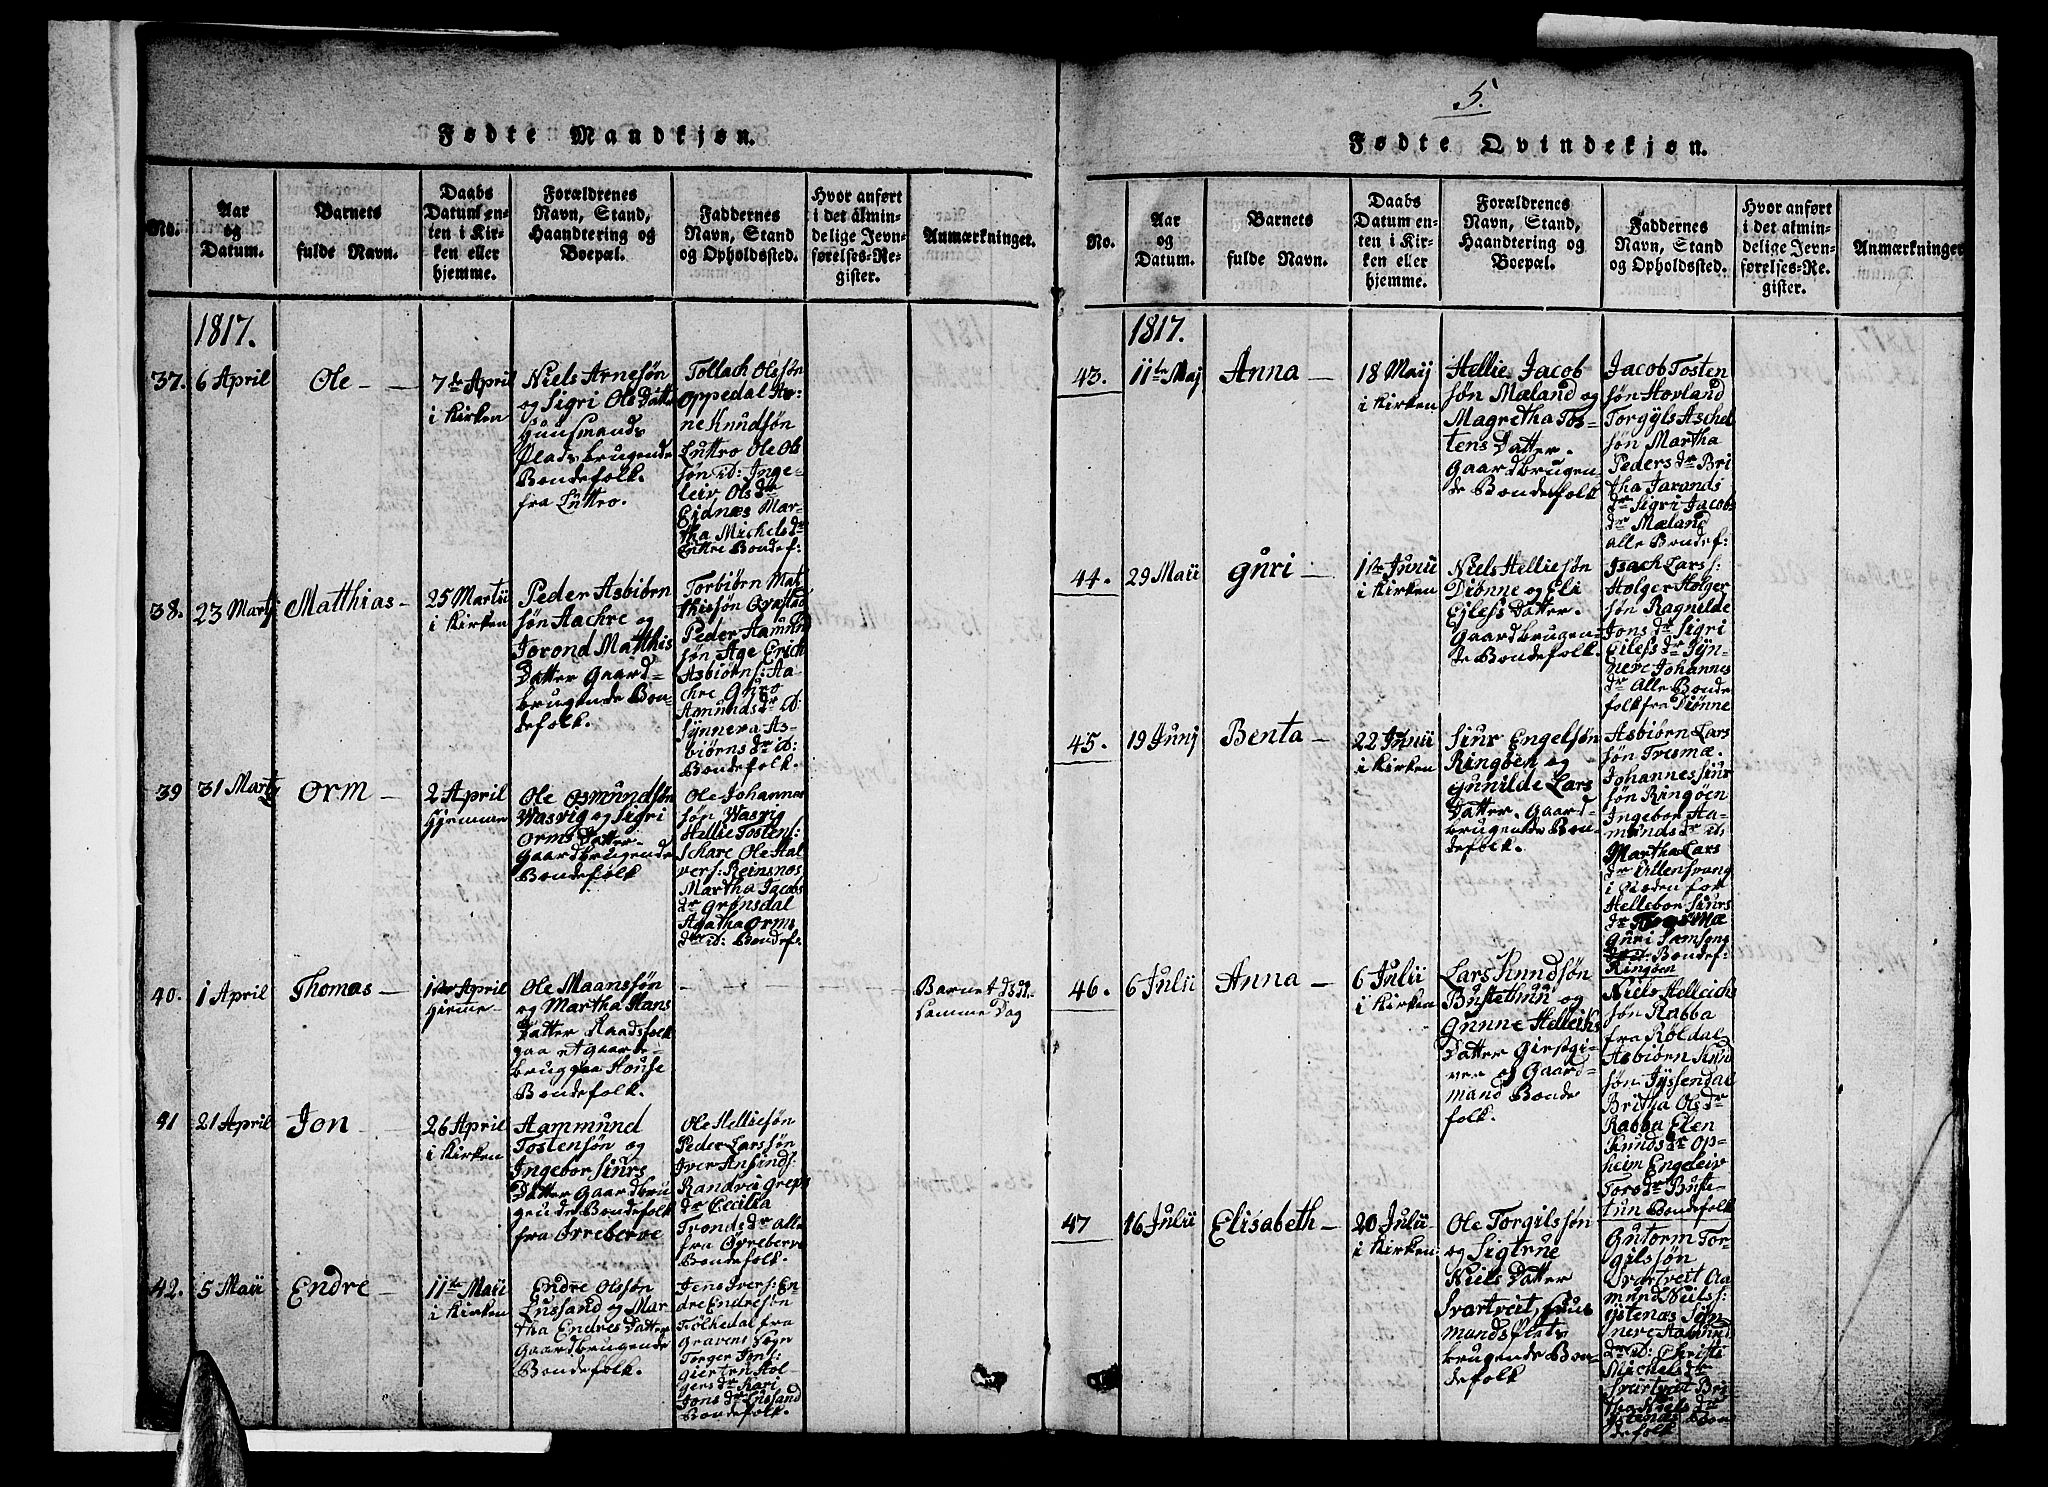 5.
Fødte Mandkjøn.
No.
Aar
og
Datum.
Barnets
fulde Navn.
Daabs
Datum en-
ten i Kir-
ken eller
hjemme.
Forældrenes
Navn, Stand,
Haandtering og
Boepæl.
Faddernes
Navn, Stand
og Opholdssted.
Hvor anført
i det almin-
delige Jevn-
førelses-Re-
gister.
Anmærkninger.
1817.
37.
6 April
Ole
7de April
i Kirken
Niels Arnesøn
og Sigri Ols Datter
Huusmands
Plads brugende
Bondefolk.
fra Luttro.
Tollach Olssøn
Oppedal Ar-
ne Knudsøn
Luttro Ole Ols
søn id: Inge-
leiv Olsdr
Eidnæs Mar-
tha Michelsdr
Luttro Bondef:
38.
23 Martj
Matthias
25 Martii
i Kirken
Peder Asbiørn
søn Aachre og
Jorond Matthis
Datter Gaard-
brugende Bon-
defolk.
Torbiørn Mat
thissøn Qvæstad
Peder Aamund
søn Age Erich
Asbiørns: Aa-
chre Guro
Amundsdr id:
Synneva As-
biørns dr id:
Bondefolk.
39
31 Martj
Orm
2 April
Hjemme
Ole Osmundsøn
Wasvig og Sigri
Orms Datter.
Gaardbrugende
Bondefolk
Ole Johannes
søn Wasvig
Hellie Tostens:
Schare Ole Hal
vers: Reinsnos
Martha Jacobs
dr Grønsdal
Agatha Orms
dtr id: Bondef:
40.
1 April
Thomas
1ste April
Hjemme
Ole Maanssøn
og Martha Hans
Datter Raadsfolk
paa et Gaards-
brug paa House
Bondefolk.
Barnet døde
samme Dag
41
21 April
Jon
26 April
i Kirken
Aammund
Tostensøn og
Ingebor Siurs
Datter Gaardbru
gende Bondefolk
fra Orreberve
Ole Helliesøn
Peder Larssøn
Iver Amunds:
Randvei Greps
dr Cecilia
Tronds dr alle
fra Øyreberve
Bondefolk.
42.
5 Maii
Endre
11te Maii
i Kirken
Endre Olssøn
Lussand og Mar
tha Endres Datter
Gaardbrugende
Bondefolk.
Jens Ivers: En-
dre Endresøn
Folkedal fra
Gravens Sogn
Torger Jons:
giertru Hol
gers dr Kari
Jons dr Lussand
Bondefolk.
Fødte Qvindekjøn.
No.
Aar
og
Datum.
Barnets
fulde Navn.
Daabs
Datum en-
ten i Kir-
ken eller
hjemme.
Forældrenes
Navn, Stand,
Haandtering og
Boepæl.
Faddernes
Navn, Stand
og Opholdssted.
Hvor anført
i det almin-
delige Jevn-
førelses-Re-
gister.
Anmærkninger
1817.
43.
11te Maj
Anna
18 Maij
i Kirken
Hellie Jacob
søn Mæland og
Magretha Tos-
tens Datter.
Gaardbrugen-
de Bondefolk
Jacob Tosten
søn Hovland
Torgyls Aschel
søn Martha
Peders dr Bri
tha Jarands
dr Sigri Jacobs
dr Mæland
alle Bondef:
44.
29 Maii
Guri
1ste Junii
i Kirken
Niels Helliesøn
Diønne og Eli
Eylefs Datter.
Gaardbrugen-
de Bondefolk.
Isach Lars:
Holger Holger
søn Ragnilde
Jons dr Sigri
Eilefs dr Syn-
neve Johannes
dr alle Bonde
folk fra Diønne
45.
19 Junj
Benta
22 Junii
i Kirken
Siur Engelsøn
Ringøen og
Gunilde Lars
Datter. Gaard-
brugende Bon-
defolk.
Asbiørn Lars
søn Tresmæ.
Johannes Siur
søn Ringøen
Ingebor Aa-
munds dr id.
Martha Lars
dr Ullensvang
Hellebor Siurs
Guri Samsons
Bondef:
Ringøen
46.
6 Julii
Anna
6 Julii
i Kirken
Lars Knudsøn
Bustethun og
Gunne Helleiks
Datter Giestgi-
ver og Gaard-
mand Bonde
folk.
Niels Helleichs
søn Rabba
fra Røldal
Asbiørn Knud
søn Jyssendal
Britha Ols dr
Rabba Elen
Knuds dr Op-
heim Engeleiv
Tors dr Buste-
tun Bondefolk
47
16 Julii
Elisabeth
20 Julii
i Kirken
Ole Torgilssøn
og Sigtrue
Niels Datter
Svartveit, Huus
mands Plads
brugende Bon-
defolk
Gutorm Tor-
gilssøn
Svartveit Aa-
mund Neils:
Ystenæs Syn-
neve Aamund
dr id: Christi
Michels dr
Svartveit Bri-
tha Niels dr
Ystenæs Bon
defolk